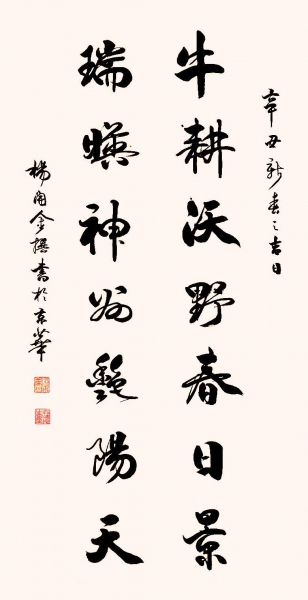 辛丑新春之吉日
牛耕沃野春日景
瑞暎神州艷陽天
楊開金撰書於京華